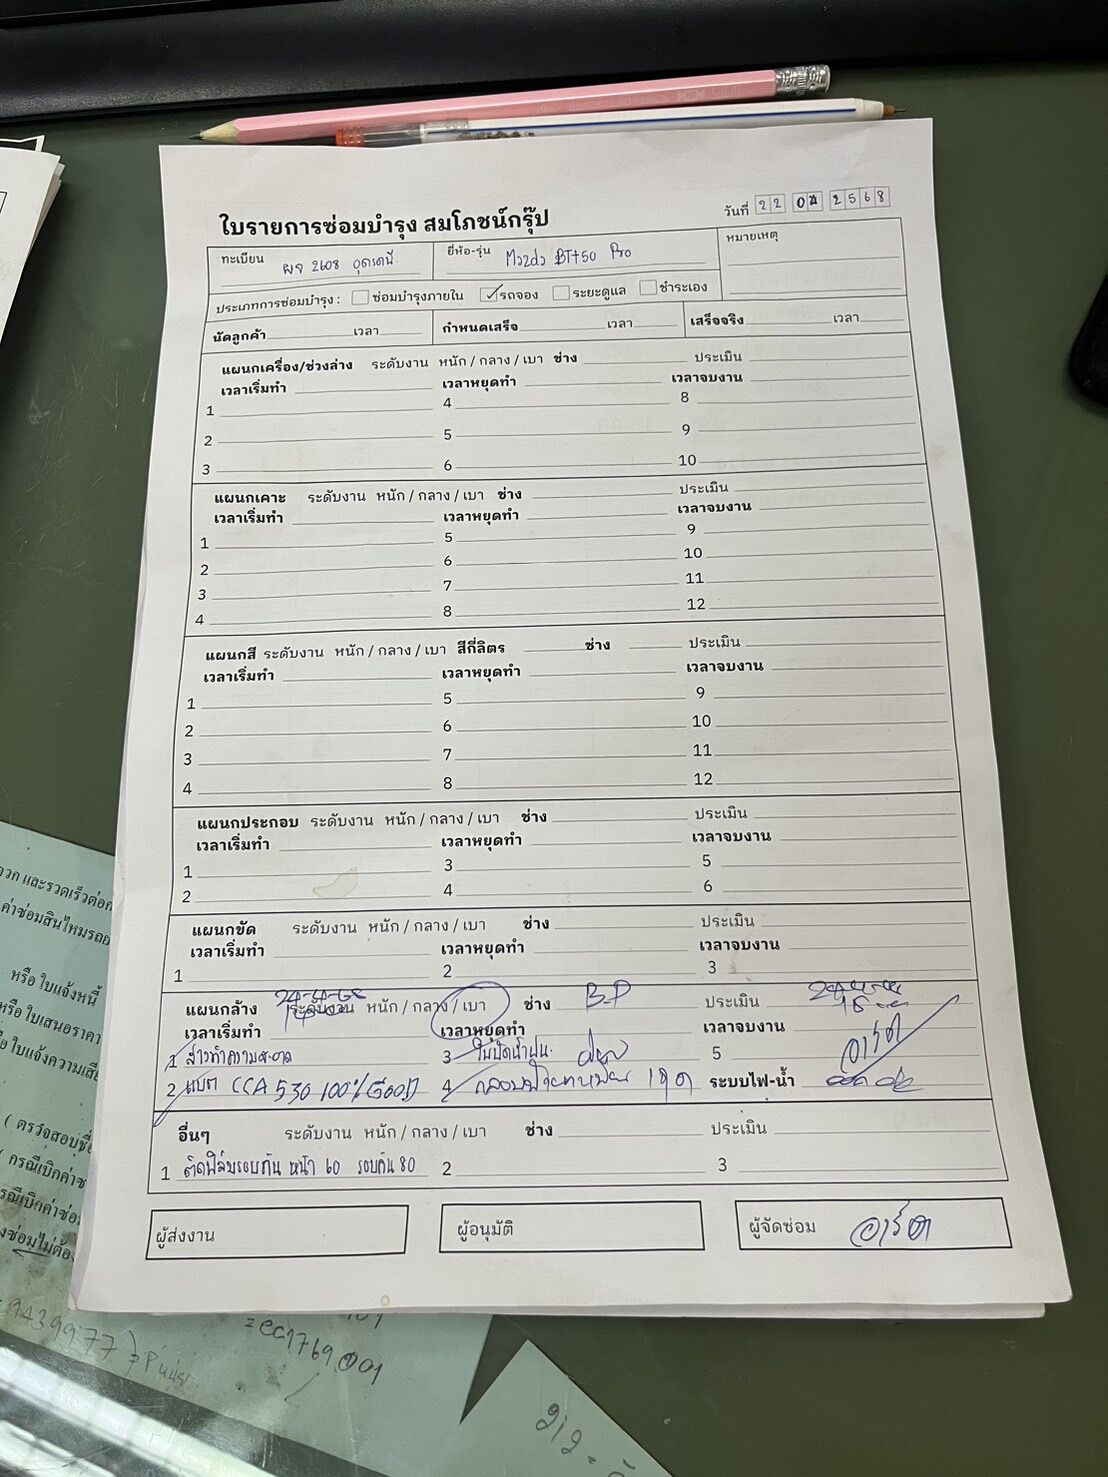 ใบรายการซ่อมบำรุง สมโภชน์กรุ๊ป
วันที่ 22 04 2568
ทะเบียน ผจ 2608 อุดรธานี ยี่ห้อ-รุ่น Mazda BT+50 Pro หมายเหตุ
ประเภทการซ่อมบำรุง : ซ่อมบำรุงภายใน ✓รถจอง ระยะดูแล ชำระเอง
นัดลูกค้า เวลา กำหนดเสร็จ เวลา เสร็จจริง เวลา
แผนกเครื่อง/ช่วงล่าง ระดับงาน หนัก / กลาง / เบา ช่าง ประเมิน
เวลาเริ่มทำ เวลาหยุดทำ เวลาจบงาน
1 4 8
2 5 9
3 6 10
แผนกเคาะ ระดับงาน หนัก / กลาง / เบา ช่าง ประเมิน
เวลาเริ่มทำ เวลาหยุดทำ เวลาจบงาน
1 5 9
2 6 10
3 7 11
4 8 12
แผนกสี ระดับงาน หนัก / กลาง / เบา สีกี่ลิตร ช่าง ประเมิน
เวลาเริ่มทำ เวลาหยุดทำ เวลาจบงาน
1 5 9
2 6 10
3 7 11
4 8 12
แผนกประกอบ ระดับงาน หนัก / กลาง / เบา ช่าง ประเมิน
เวลาเริ่มทำ เวลาหยุดทำ เวลาจบงาน
1 3 5
2 4 6
แผนกขัด ระดับงาน หนัก / กลาง / เบา ช่าง ประเมิน
เวลาเริ่มทำ เวลาหยุดทำ เวลาจบงาน
1 2 3
แผนกล้าง 24-4-68 ระดับงาน หนัก / กลาง / เบา ช่าง BP ประเมิน
เวลาเริ่มทำ เวลาหยุดทำ เวลาจบงาน
1 ล้างทำความสะอาด 3 ใบปัดน้ำฝน 5 อาร์ต
2 แบต CCA 530 100% GOOD 4 กรอบป้ายทะเบียน 1 ชุด ระบบไฟ-น้ำ
อื่นๆ ระดับงาน หนัก / กลาง / เบา ช่าง ประเมิน
1 ติดฟิล์มรอบคัน หน้า 60 รอบคัน 80 2 3
ผู้ส่งงาน ผู้อนุมัติ ผู้จัดซ่อม อาร์ต
และรวดเร็วต่อ
ค่าซ่อมสินไหมรถย
หรือ ใบแจ้งหนี้
หรือ ใบเสนอราคา
ใบแจ้งความเสีย
( ตรวจสอบชื่อ
( กรณีเบิกค่าซ
รณีเบิกค่าซ่อ
งซ่อมไม่ต้อ
9439977
= CC1769001
212